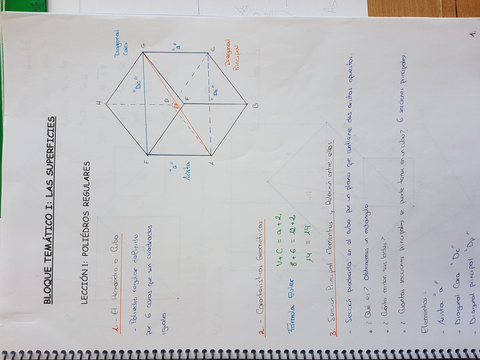 BLOQUE TEMÁTICO I: LAS SUPERFICIES
LECCIÓN 1: POLIÉDROS REGULARES
1.- El Hexaedro o Cubo
- Poliedro regular definido
por 6 caras que son cuadrados
iguales
Diagonal
Cara
G
"a"
C
Diagonal
Principal
H
"Dc"
D
"Dc"
F
B
E
"a"
A
Arista
2.- Características Geométricas
Fórmula Euler
V+C = a+2
8+6 = 12+2
14 = 14
3.- Sección Principal. Elementos y Relación entre ellos.
- Sección producida en el cubo por un plano que contiene dos aristas opuestas.
• ¿Qué es? Obtenemos un rectángulo
• ¿Cuánto miden sus lados?
• ¿Cuántas secciones principales se puede tomar en un cubo? 6 secciones principales.
Elementos:
- Arista "a"
- Diagonal Cara "Dc"
- Diagonal principal "Dp"
1.